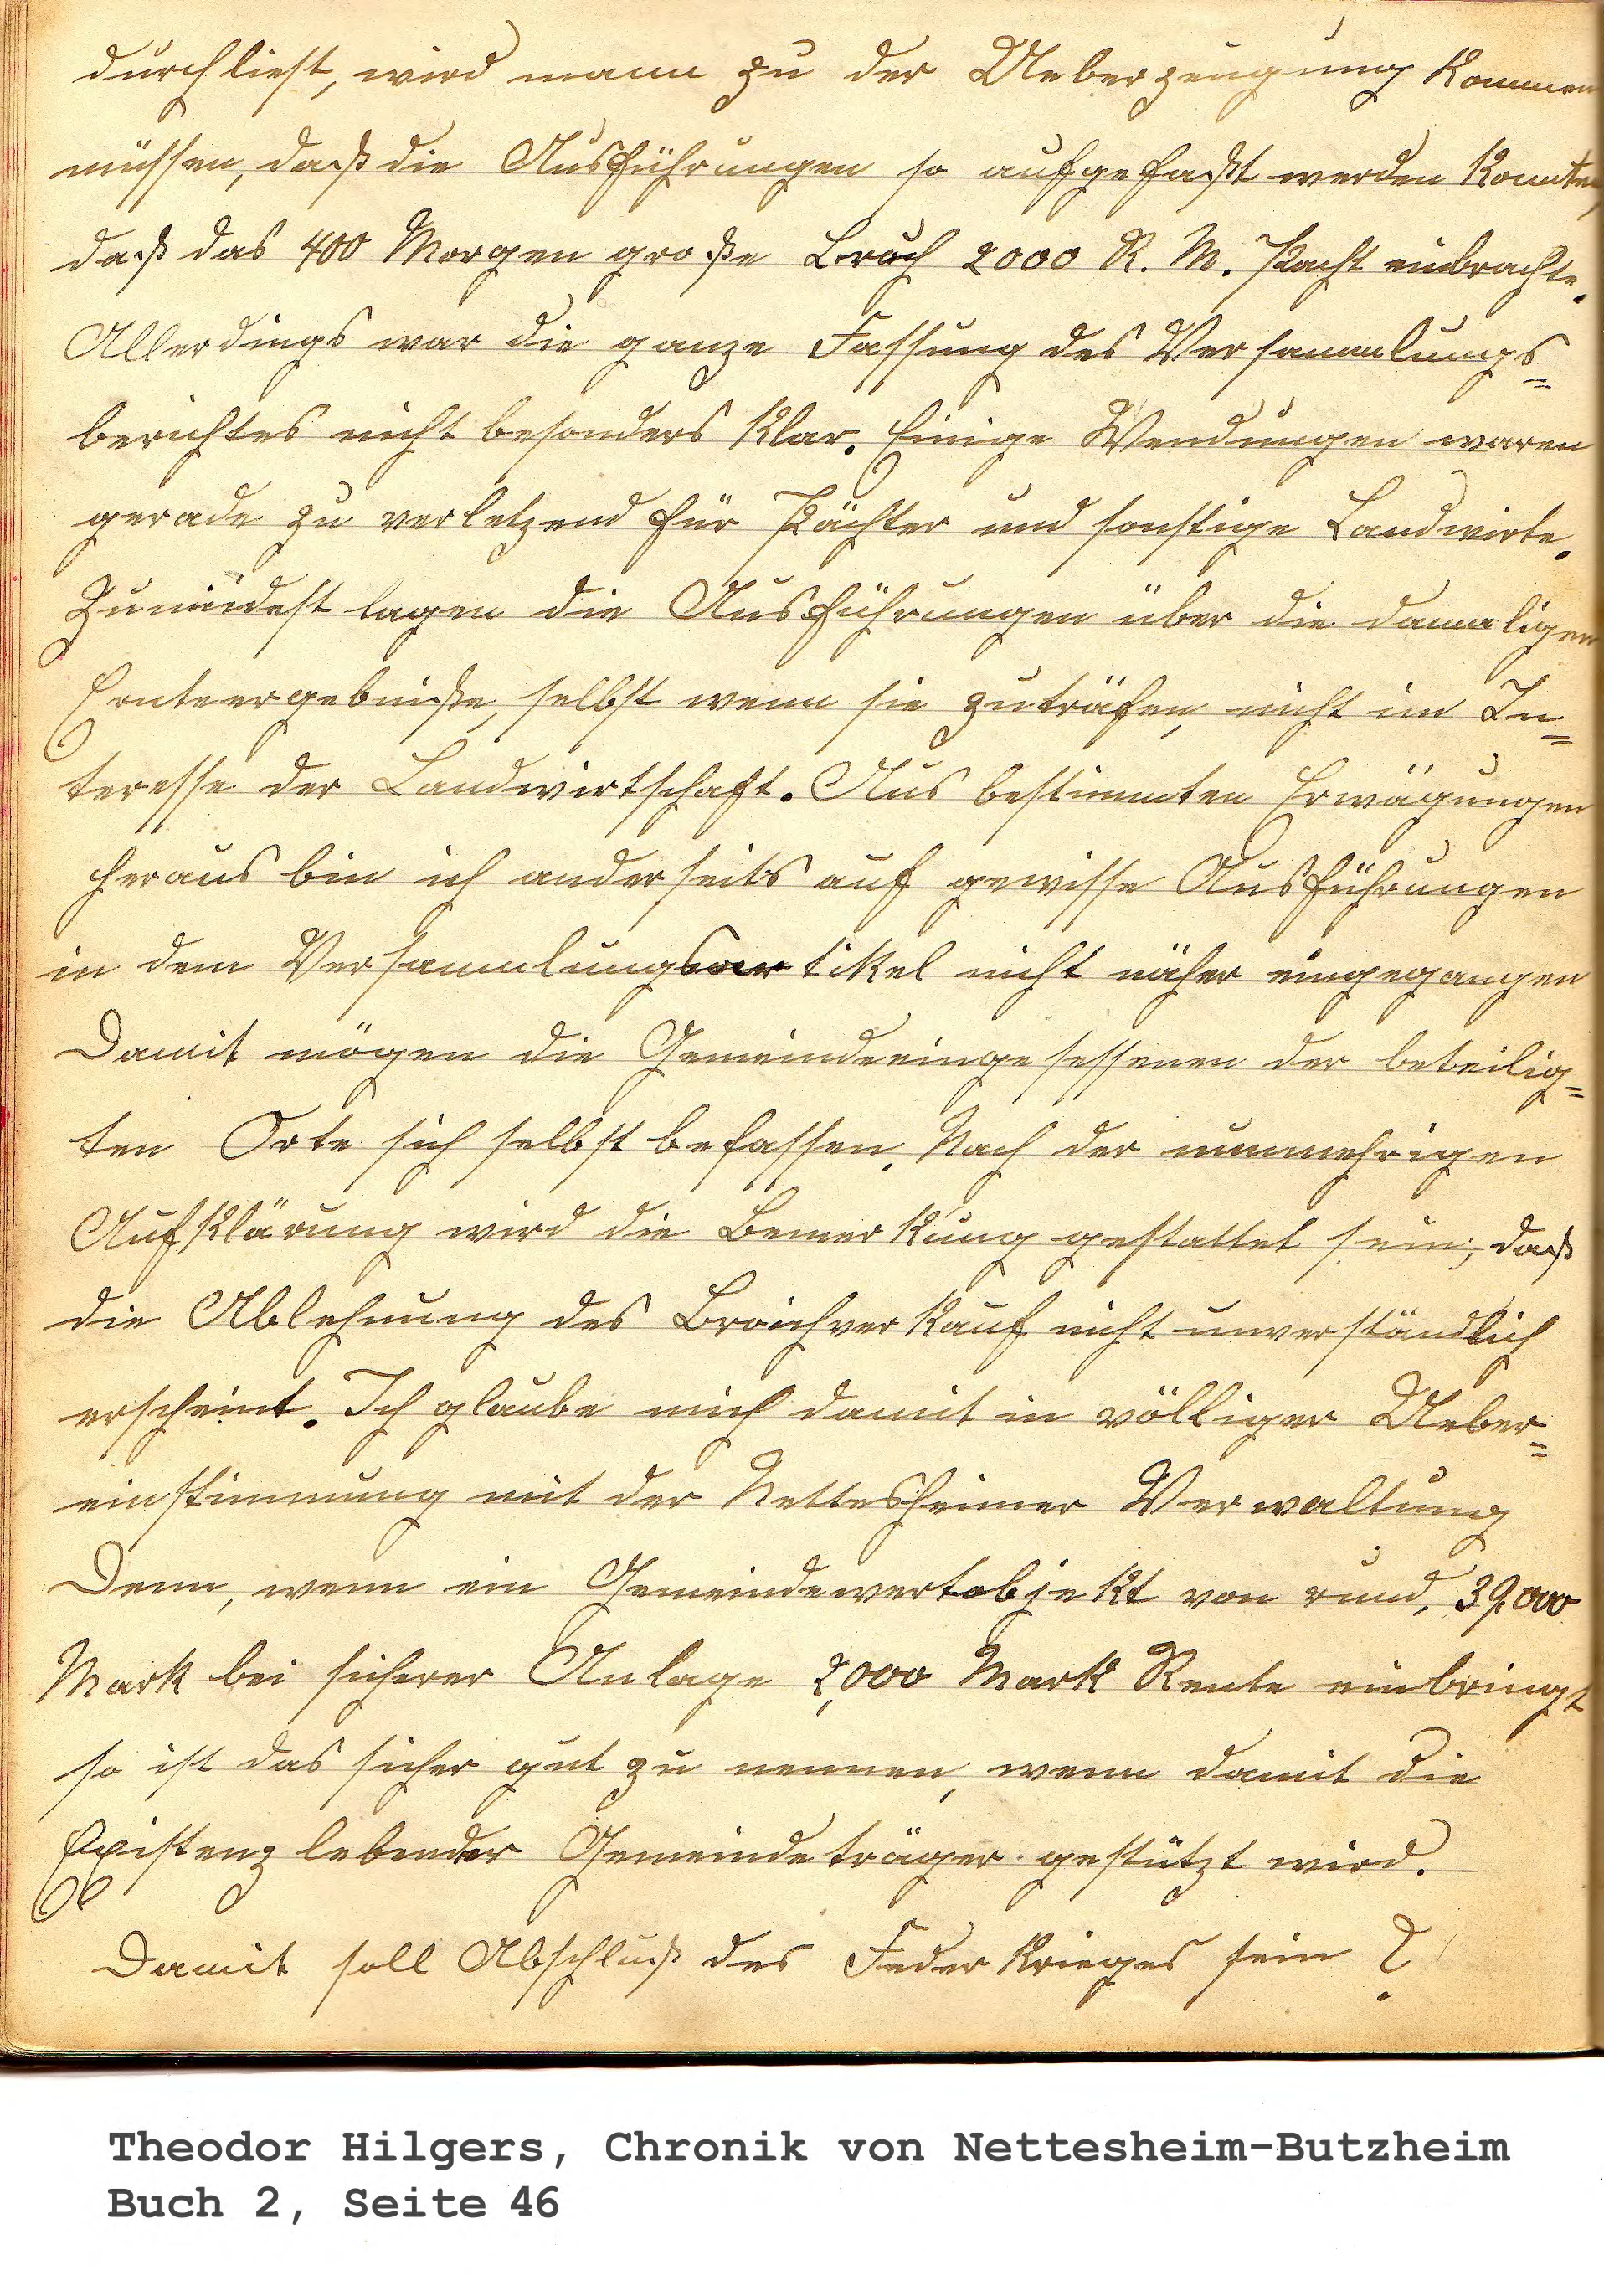 durchliest, wird mann zu der Ueberzeugung kommen
müssen, daß die Ausführungen so aufgefaßt werden konnte,
daß das 400 Morgen große Bruch 2000 R. M. Pacht einbrachte.
Allerdings war die ganze Fassung des Versammlungs=
berichtes nicht besonders klar. Einige Wendungen waren
gerade zu verletzend für Pächter und sonstige Landwirte.
Zumindest lagen die Ausführungen über die damaligen
Ernteergebniße, selbst wenn sie zuträfen, nicht im In=
teresse der Landwirtschaft. Aus bestimmten Erwägungen
heraus bin ich anderseits auf gewisse Ausführungen
in dem Versammlungsartikel nicht näher eingegangen
Damit mögen die Gemeindeeingesessenen der beteilig=
ten Orte sich selbst befassen. Nach der nunmehrigen
Aufklärung wird die Bemerkung gestattet sein, daß
die Ablehnung des Broichverkauf nicht unverständlich
erscheint. Ich glaube mich damit in völliger Ueber=
einstimmung mit der Nettesheimer Verwaltung
Denn, wenn ein Gemeindewertobjekt von rund, 39,000
Mark bei sicherer Anlage 2,000 Mark Rente einbringt
so ist das sicher gut zu nennen, wenn damit die
Existenz lebender Gemeindeträger gestützt wird.
Damit soll Abschluß des Federkrieges sein ?
Theodor Hilgers, Chronik von Nettesheim-Butzheim
Buch 2, Seite 46